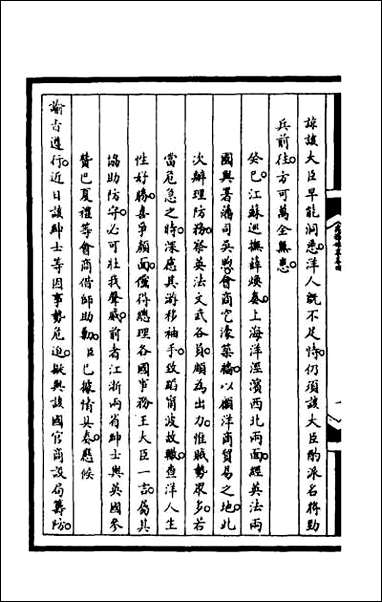 諒該大臣早能洞悉洋人既不足恃仍須該大臣酌派名將勁
兵前往方可萬全無患
癸巳江蘇巡撫薛煥奏上海洋涇濱西北兩面經英法兩
國與署藩司吳煦會商它濠築橋以顧洋商貿易之地此
次辦理防務察英法文武各員頗為出力惟賊勢眾多若
當危急之時深慮其游移袖手致蹈甯波故轍查洋人生
性好勝喜爭顏面儻得總理各國事務王大臣一言屬其
協助防守必可壯我聲威前者江浙兩省紳士與英國參
贊巴夏禮等會商借師助勦臣已據情具奏應候
諭旨遵行近日該紳士等因事勢危迫擬與該國官商設局籌防